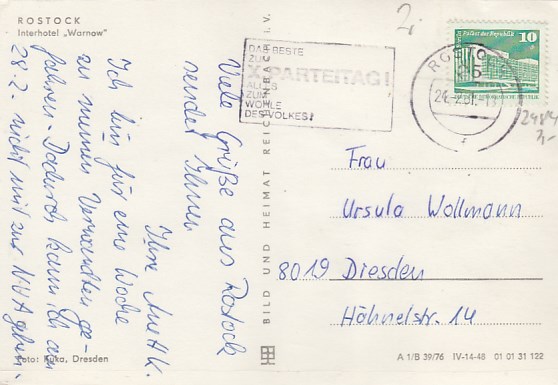 ROSTOCK
Interhotel „Warnow"
Viele Grüße aus Rostock
sendet Ihnen
Ihre
Ich bin für eine Woche
zu meinen Verwandten ge-
fahren - Dadurch kann ich am
28.2 nicht mit zur NVA gehen.
Foto: Kuka, Dresden
BILD UND HEIMAT REICHENBACH i. V.
2,-
DAS BESTE
ZUM
X. PARTEITAG!
ALLES
ZUM
WOHLE
DES VOLKES!
Palast der Republik
10
ROSTOCK
24.-2.81
Frau
Ursula Wollmann
8019 Dresden
Hähnelstr. 14
A 1/B 39/76 IV-14-48 01 01 31 122